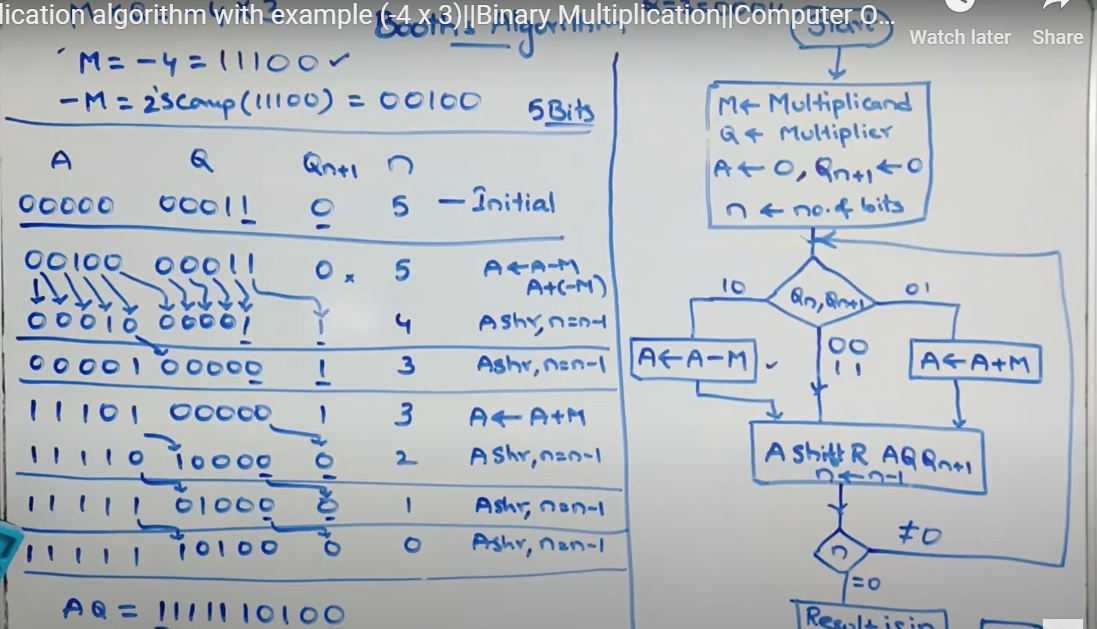 lication algorithm with example (-4 x 3)||Binary Multiplication||Computer O...
Watch later Share
Booth's Algorithm
M = -4 = 11100 ✓
-M = 2'scomp(11100) = 00100 5Bits
A Q Qn+1 n
00000 00011 0 5 — Initial
00100 00011 0 × 5 A←A-M
A+(-M)
00010 00001 1 4 Ashr, n=n-1
00001 00000 1 3 Ashr, n=n-1
11101 00000 1 3 A← A+M
11110 10000 0 2 Ashr, n=n-1
11111 01000 0 1 Ashr, n=n-1
11111 10100 0 0 Ashr, n=n-1
AQ = 1111110100
Start
M← Multiplicand
Q ← Multiplier
A← 0, Qn+1 ←0
n ← no. of bits
10 Qn, Qn+1 01
00
11
A←A-M ✓ A←A+M
A Shift R AQQn+1
n←n-1
n ≠0
=0
Result is in